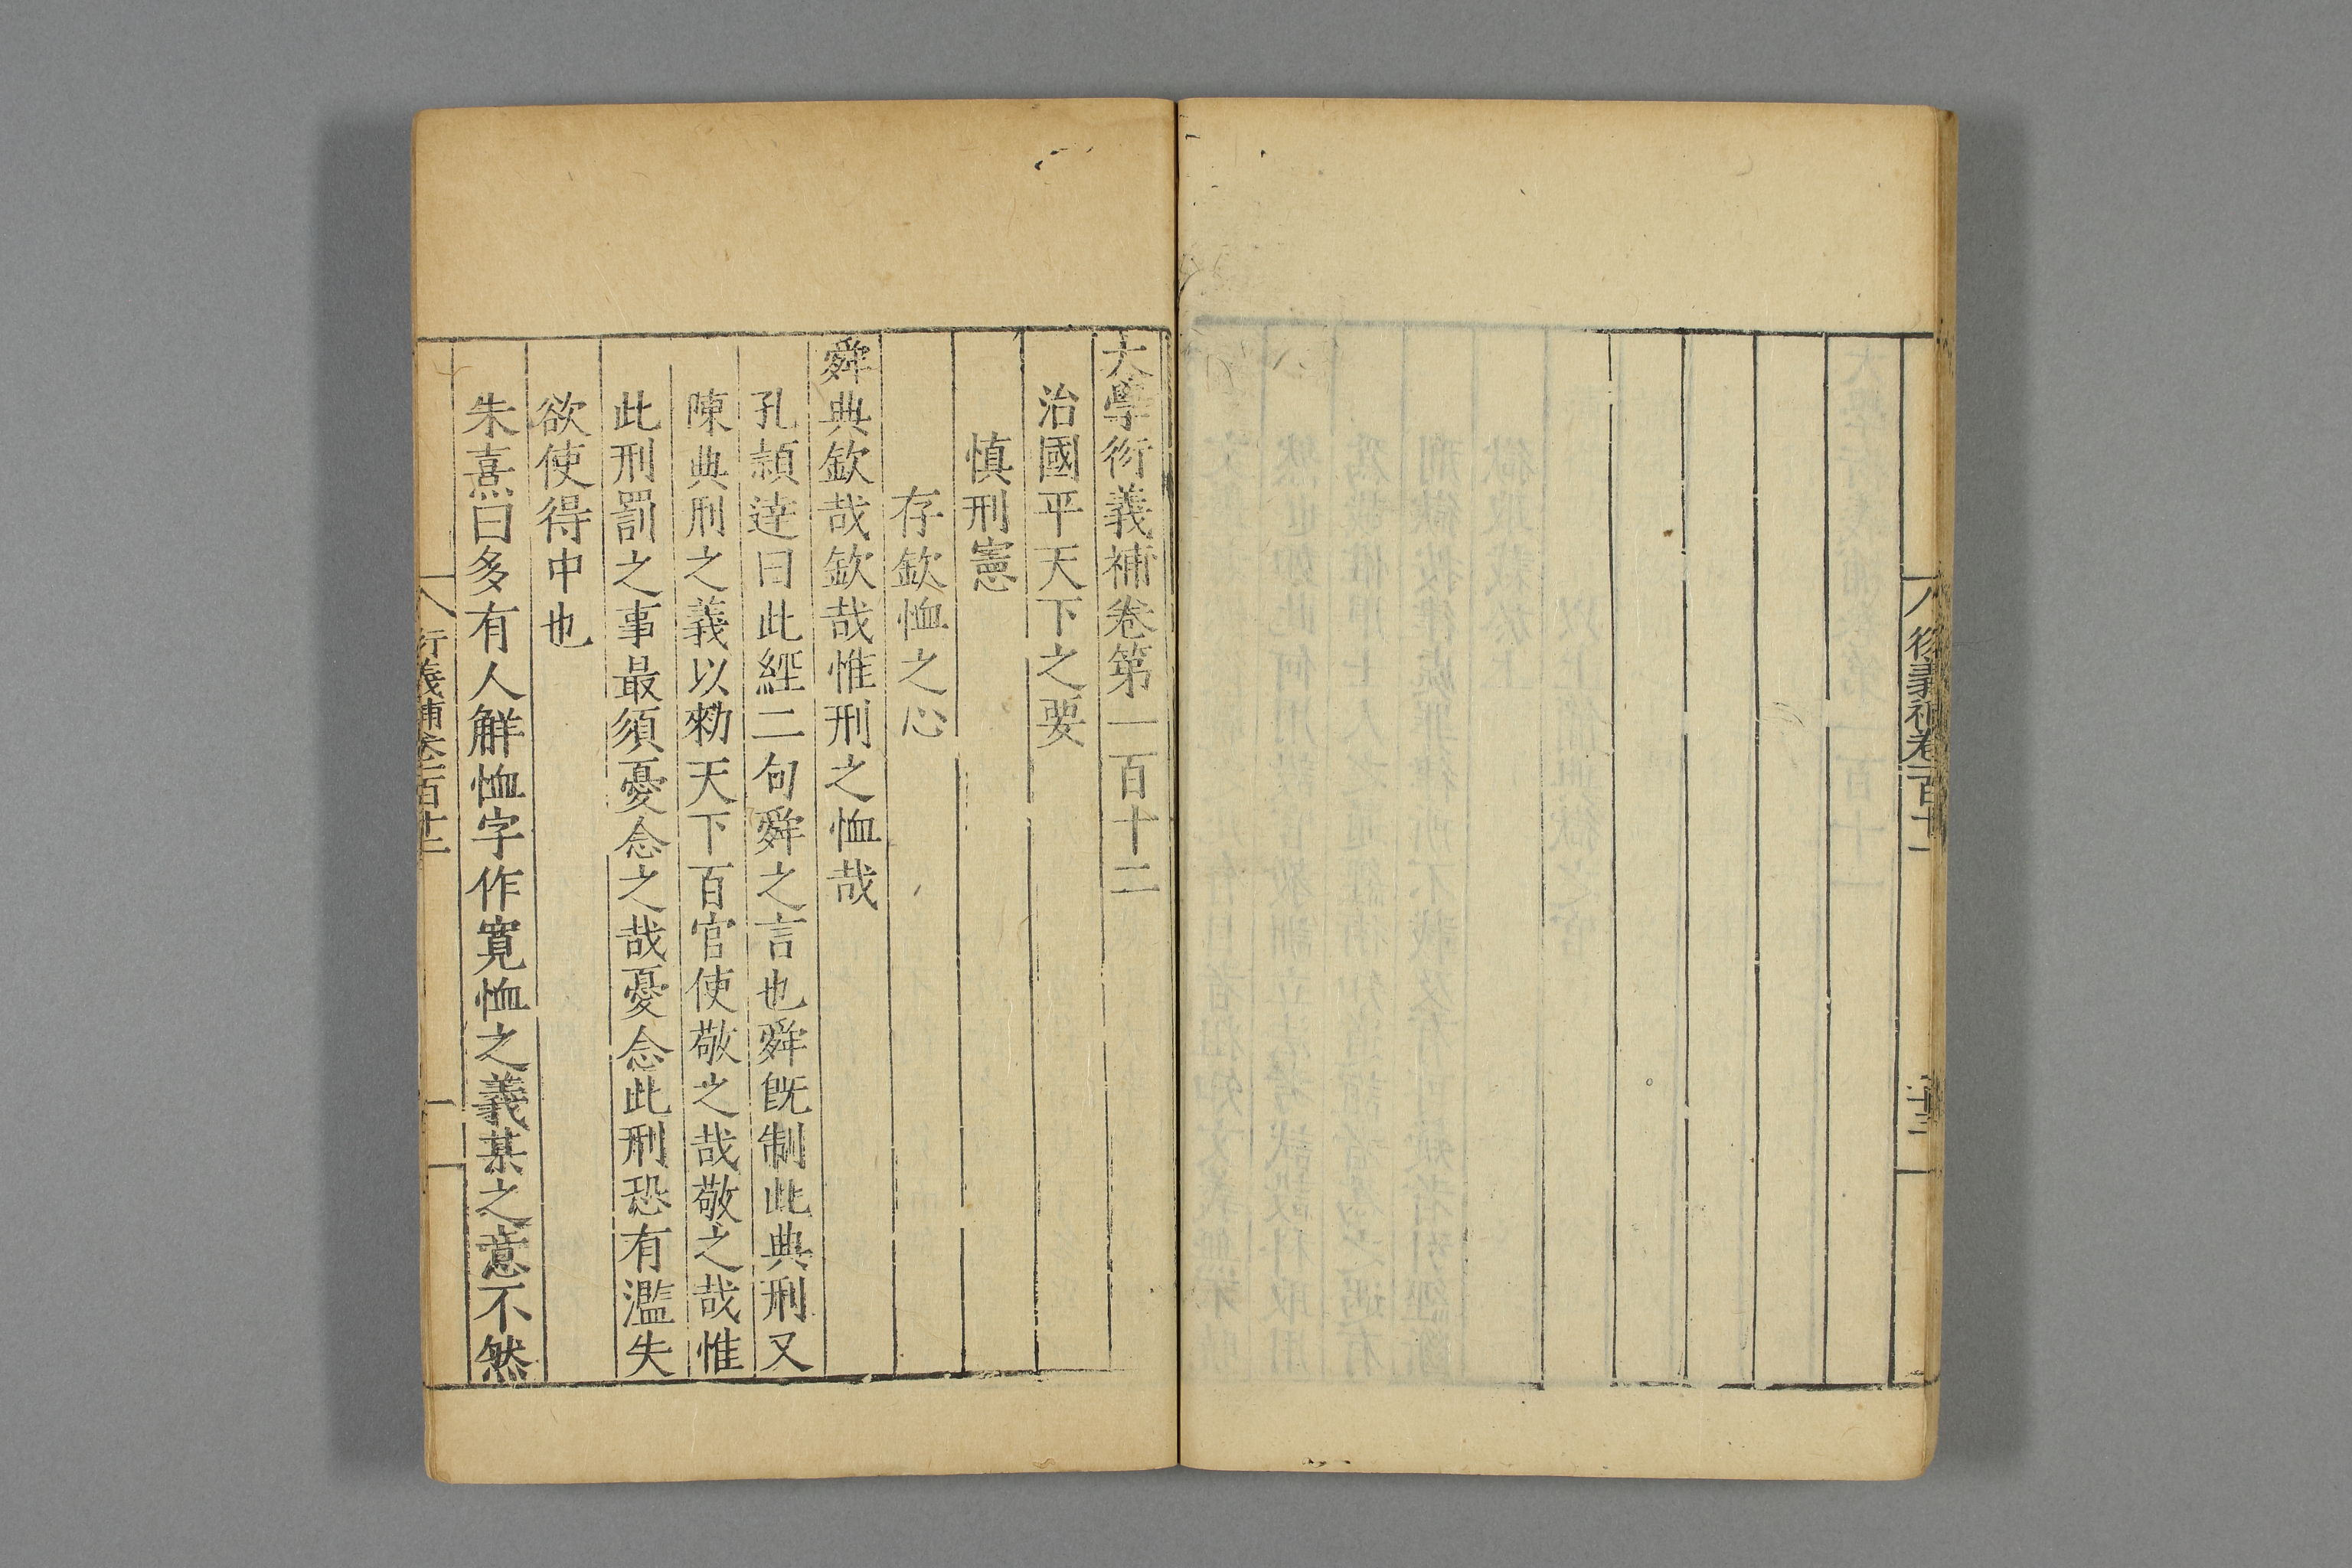 大學衍義補卷第一百十二
治國平天下之要
慎刑憲
存欽恤之心
舜典欽哉欽哉惟刑之恤哉
孔頴逹曰此經二句舜之言也舜既制此典刑又
陳典刑之義以勑天下百官使敬之哉敬之哉惟
此刑罰之事最須憂念之哉憂念此刑恐有濫失
欲使得中也
朱熹曰多有人解恤字作寛恤之義某之意不然
衍義補卷一百十二
一
衍義補卷一百十一